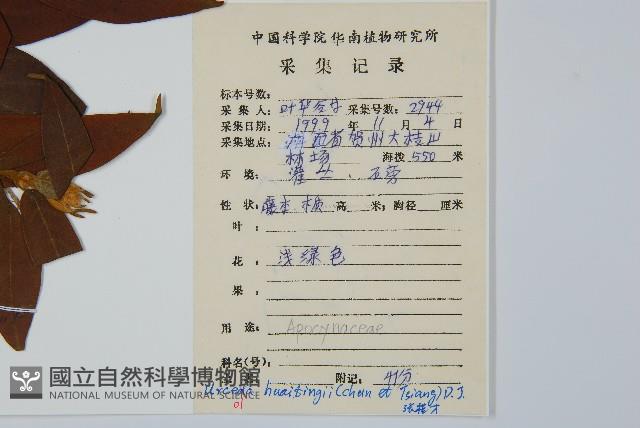 中国科学院华南植物研究所
采集记录
标本号数：
采集人：叶华谷 采集号数：2944
采集日期：1999 年 11 月 4 日
采集地点： 省贺州大桂山
林场 海拨 550 米
环境：灌丛、
性状：藤本 高 米；胸径 厘米
叶：
花：浅绿色
果：
用途：Apocynaceae
科名(号)：
附记：
國立自然科學博物館
NATIONAL MUSEUM OF NATURAL SCIENCE
Urceola huaitingii (Chun et Tsiang) D.J.
01